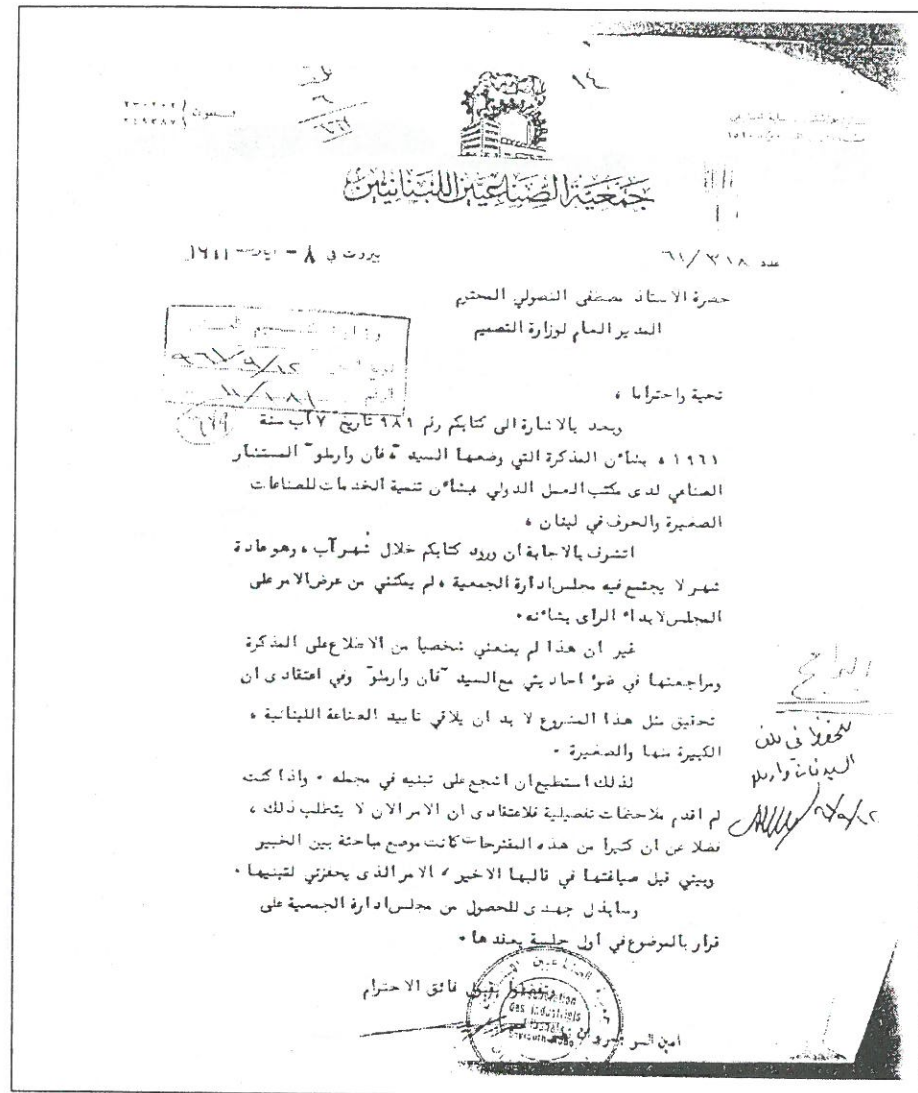 ١٤
تلفون ٢٣٠٢٠٢
٢٤٩٣٨٧
جمعية الصناعيين اللبنانيين
عدد ٦١/٣١٨
بيروت في ٨ - ١٩٦١
حضرة الاستاذ مصطفى النصولي المحترم
المدير العام لوزارة التصميم
وزارة التصميم
٩٦١/٩/١٢
تحية واحتراما ،
وبعد بالاشارة الى كتابكم رقم ٩٨٩ تاريخ ٧ آب سنة
١٩٦١ ، بشأن المذكرة التي وضعها السيد "فان وارملو" المستشار
الصناعي لدى مكتب العمل الدولي بشأن تنمية الخدمات للصناعات
الصغيرة والحرف في لبنان ،
اتشرف بالاجابة ان ورود كتابكم خلال شهر آب ، وهو عادة
شهر لا يجتمع فيه مجلس ادارة الجمعية ، لم يمكنني من عرض الامر على
المجلس لابداء الرأى بشأنه .
غير ان هذا لم يمنعني شخصيا من الاطلاع على المذكرة
ومراجعتها في ضوء احاديثي مع السيد "فان وارملو" وفي اعتقادى ان
تحقيق مثل هذا المشروع لا بد ان يلاقي تاييد الصناعة اللبنانية ،
الكبيرة منها والصغيرة .
للحفظ في ملف
السيد فان وارملو
لذلك استطيع ان اشجع على تبنيه في مجمله . واذا كنت
لم اقدم ملاحظات تفصيلية فلاعتقادى ان الامر الان لا يتطلب ذلك ،
فضلا عن ان كثيرا من هذه المقترحات كانت موضع مباحثة بين الخبير
وبيني قبل صياغتها في قالبها الاخير ، الامر الذى يحفزني لتبنيها .
وسأبذل جهدى للحصول من مجلس ادارة الجمعية على
قرار بالموضوع في أول جلسة يعقدها .
وتفضلوا بقبول فائق الاحترام
امين السر
Association
des Industriels